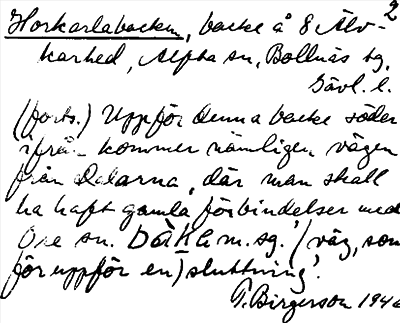 2
Horkarlabacken, backe å 8 Älv-
karhed, Alfta sn, Bollnäs tg,
Gävl. l.
(forts.) Uppför denna backe söder
ifrån kommer nämligen vägen
från Dalarna, där man skall
ha haft gamla förbindelser med
Ore sn. m. sg. (väg, som
för uppför en) sluttning'.
T. Birgerson